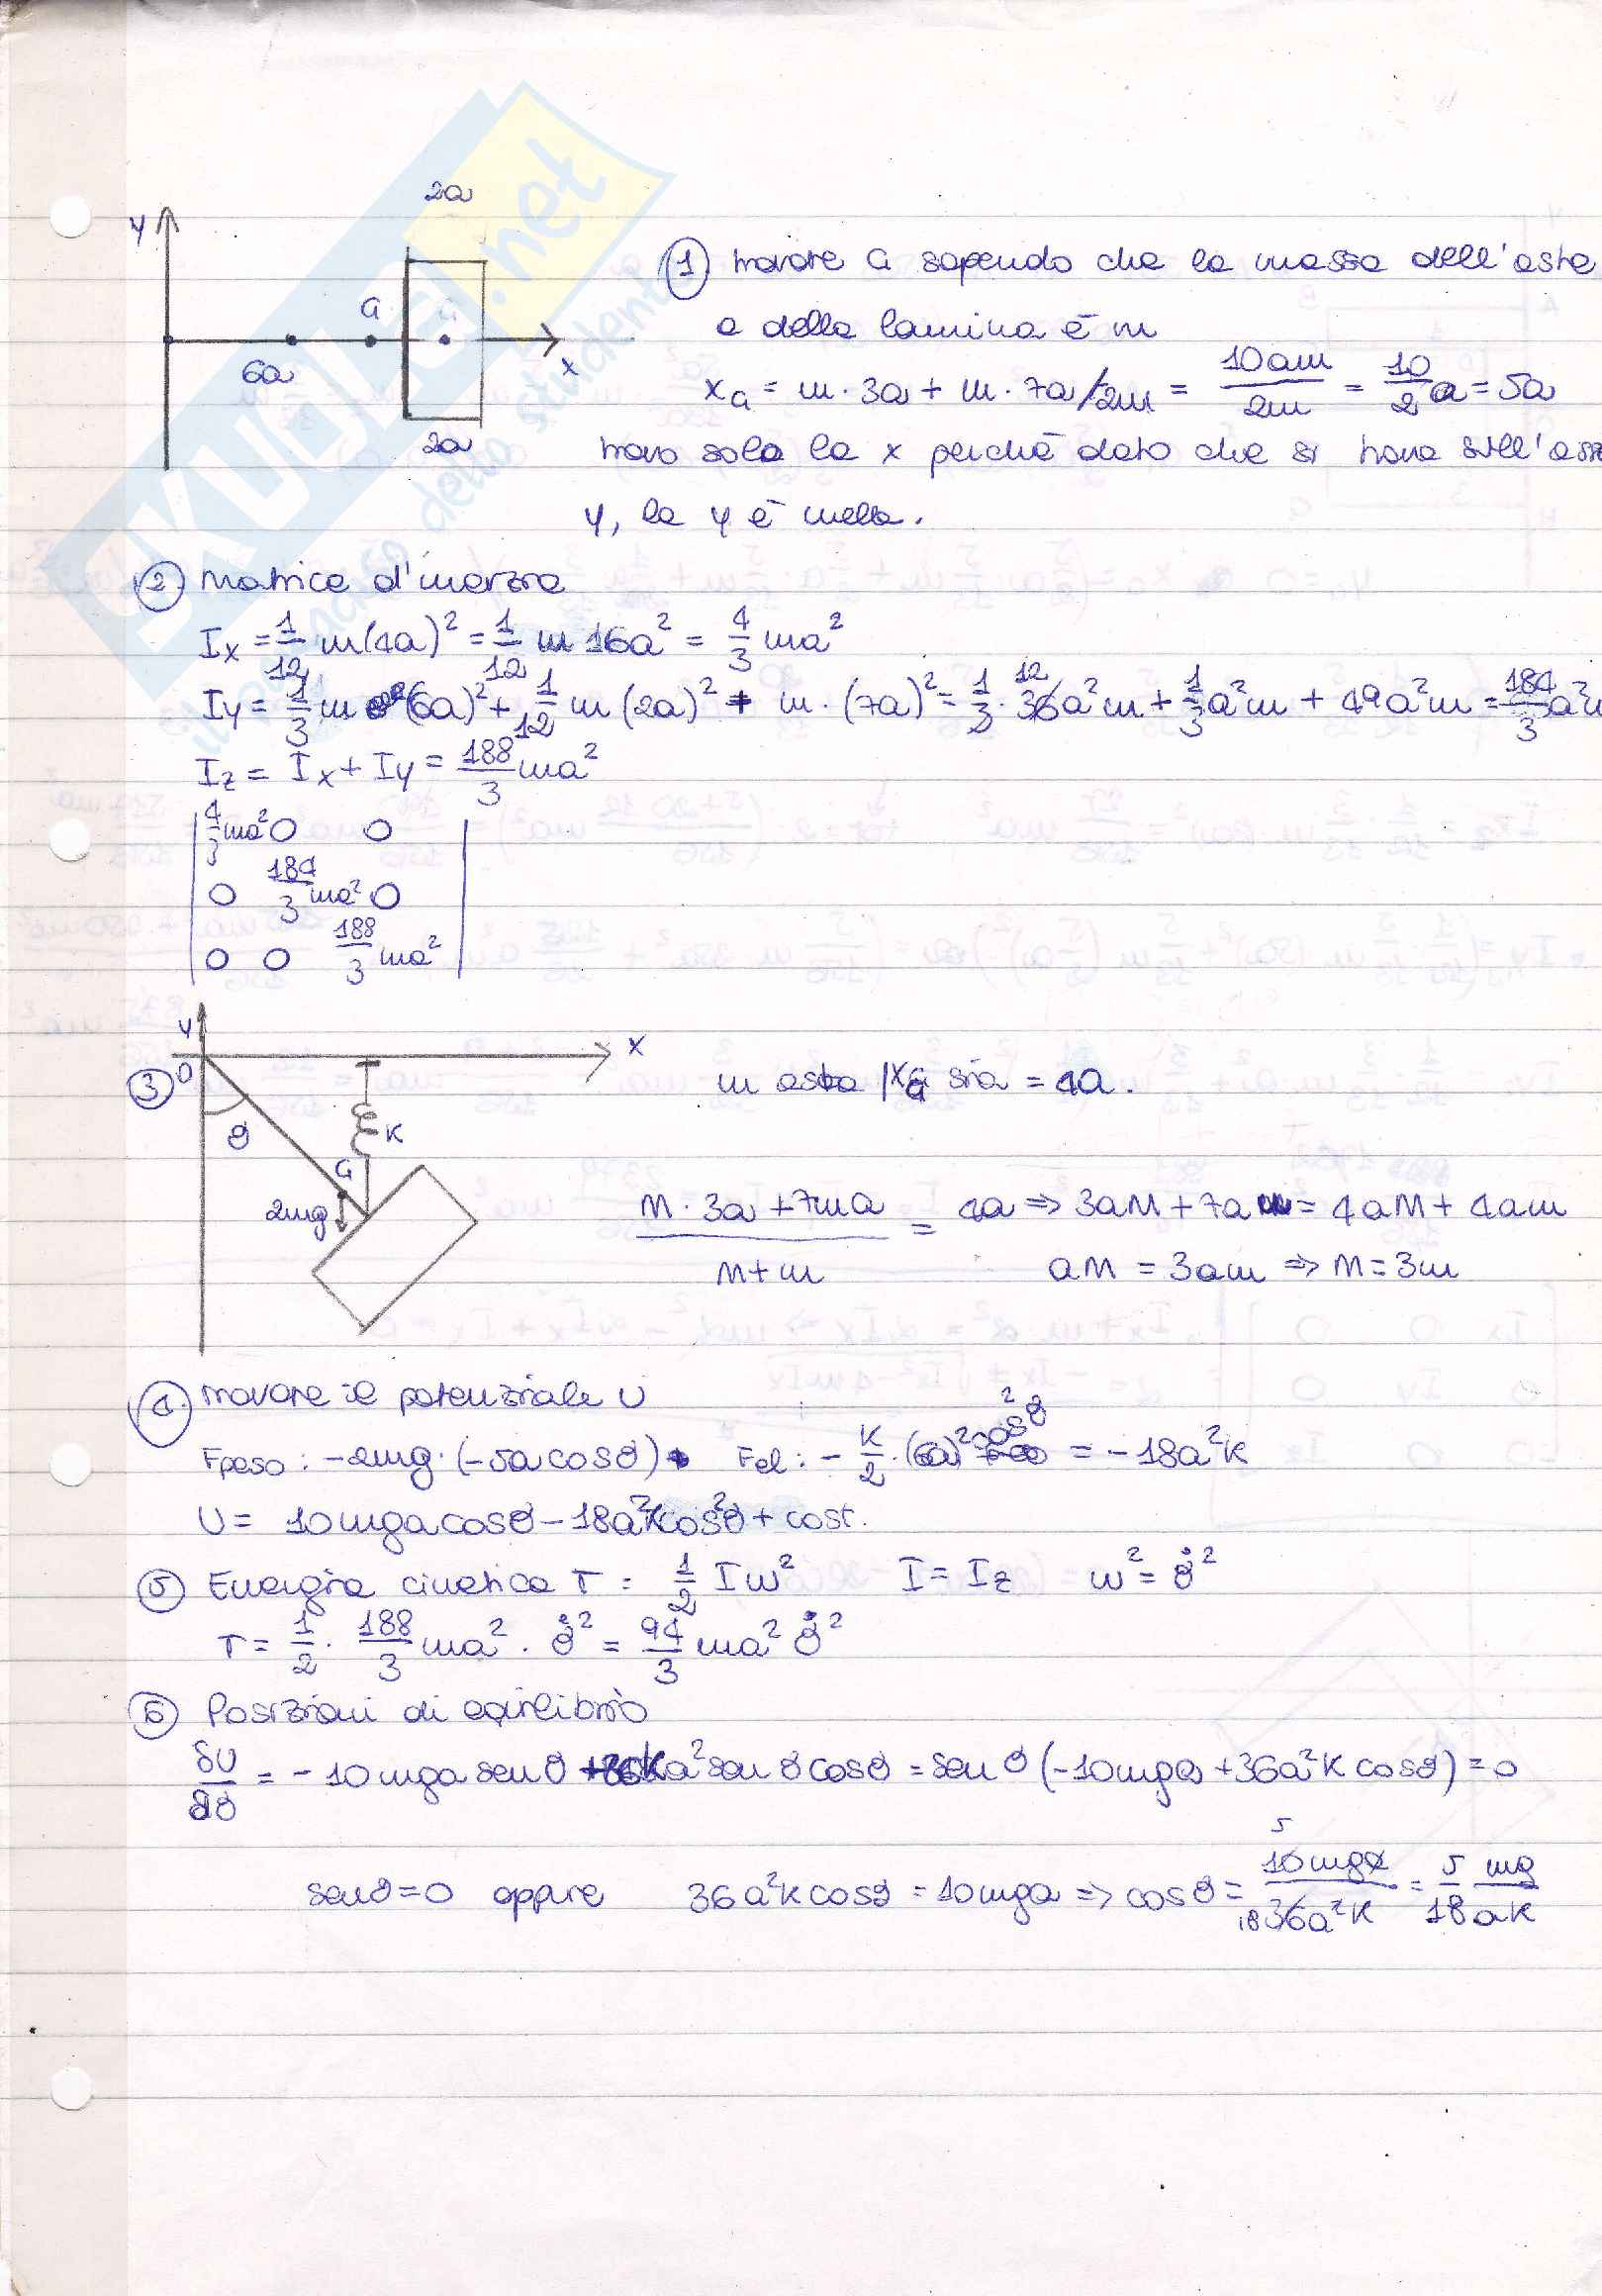 2a
y
① trovare G sapendo che la massa dell'asta
G
G
e della lamina è m
6a
x
x_G = m · 3a + m · 7a / 2m = 10am / 2m = 10/2 a = 5a
2a
trovo solo la x perché dato che si trova sull'asse
y, la y è nulla.
② Matrice d'inerzia
Ix = 1/12 m(4a)² = 1/12 m 16a² = 4/3 ma²
Iy = 1/3 m (6a)² + 1/12 m (2a)² + m · (7a)² = 1/3 · 36 12 a²m + 1/3 a²m + 49a²m = 184/3 a²m
Iz = Ix + Iy = 188/3 ma²
4/3 ma² 0 0
0 184/3 ma² 0
0 0 188/3 ma²
y
x
③ O
m asta | x_G sia = 4a.
θ
K
G
2mg
M · 3a + 7ma / M + m = 4a ⇒ 3aM + 7am = 4aM + 4am
aM = 3am ⇒ M = 3m
④ trovare il potenziale U
Fpeso : -2mg · (-5a cosθ) Fel : - K/2 · (6a)² cos²θ = -18a²K
U = 10mga cosθ - 18a²K cos²θ + cost.
⑤ Energia cinetica T = 1/2 Iω² I = Iz ω² = θ̇²
T = 1/2 · 188/3 ma² · θ̇² = 94/3 ma² θ̇²
⑥ Posizioni di equilibrio
δU/δθ = -10mga senθ + 36Ka² senθ cosθ = senθ (-10mga + 36a²K cosθ) = 0
senθ = 0 oppure 36a²K cosθ = 10mga ⇒ cosθ = 10 5 mga / 36 18 a²K = 5/18 mg/aK
SKUOLA.net
il paradiso dello studente